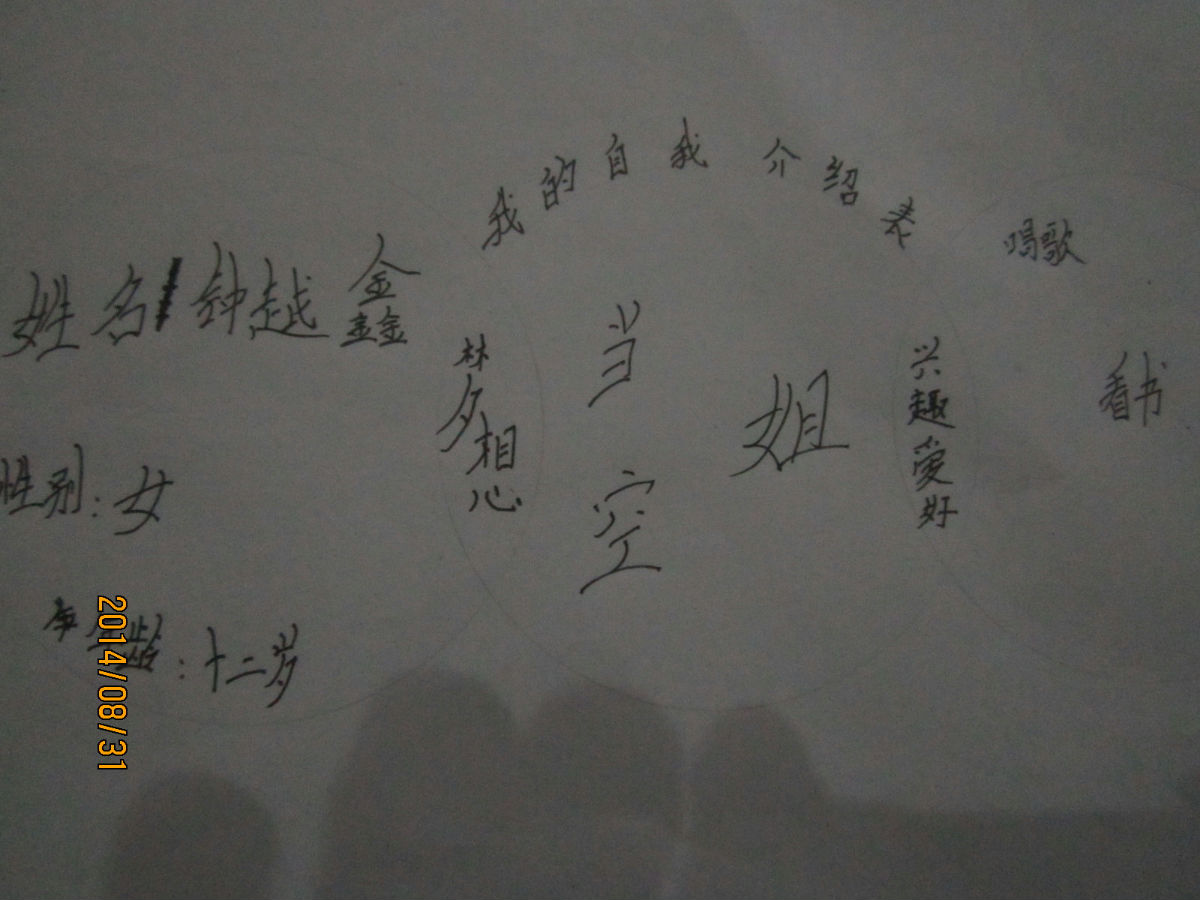 我的自我介绍表
姓名 钟越鑫
性别：女
年龄：十二岁
梦想
当空姐
兴趣爱好
唱歌
看书
2014/08/31